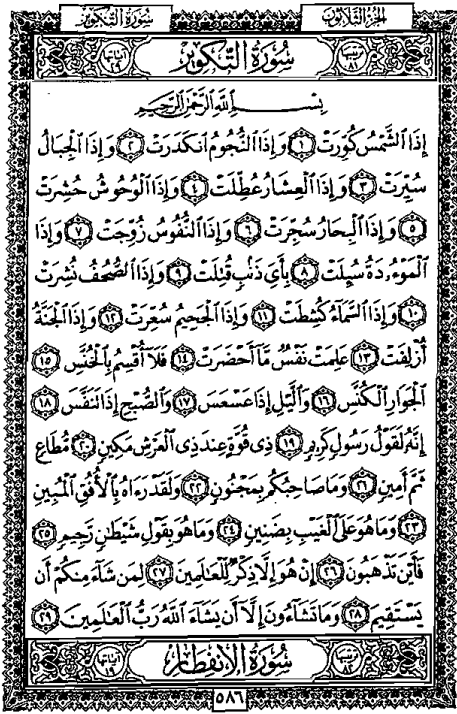 الجزء الثلاثون سورة التكوير
ترتيبها ٨١ سُورَةُ التَّكْوِيرِ آياتها ٢٩
بِسْمِ ٱللَّهِ ٱلرَّحْمَٰنِ ٱلرَّحِيمِ
إِذَا ٱلشَّمْسُ كُوِّرَتْ ١ وَإِذَا ٱلنُّجُومُ ٱنكَدَرَتْ ٢ وَإِذَا ٱلْجِبَالُ
سُيِّرَتْ ٣ وَإِذَا ٱلْعِشَارُ عُطِّلَتْ ٤ وَإِذَا ٱلْوُحُوشُ حُشِرَتْ
٥ وَإِذَا ٱلْبِحَارُ سُجِّرَتْ ٦ وَإِذَا ٱلنُّفُوسُ زُوِّجَتْ ٧ وَإِذَا
ٱلْمَوْءُۥدَةُ سُئِلَتْ ٨ بِأَيِّ ذَنۢبٍ قُتِلَتْ ٩ وَإِذَا ٱلصُّحُفُ نُشِرَتْ
١٠ وَإِذَا ٱلسَّمَآءُ كُشِطَتْ ١١ وَإِذَا ٱلْجَحِيمُ سُعِّرَتْ ١٢ وَإِذَا ٱلْجَنَّةُ
أُزْلِفَتْ ١٣ عَلِمَتْ نَفْسٌ مَّآ أَحْضَرَتْ ١٤ فَلَآ أُقْسِمُ بِٱلْخُنَّسِ ١٥
ٱلْجَوَارِ ٱلْكُنَّسِ ١٦ وَٱلَّيْلِ إِذَا عَسْعَسَ ١٧ وَٱلصُّبْحِ إِذَا تَنَفَّسَ ١٨
إِنَّهُۥ لَقَوْلُ رَسُولٍ كَرِيمٍ ١٩ ذِى قُوَّةٍ عِندَ ذِى ٱلْعَرْشِ مَكِينٍ ٢٠ مُّطَاعٍ
ثَمَّ أَمِينٍ ٢١ وَمَا صَاحِبُكُم بِمَجْنُونٍ ٢٢ وَلَقَدْ رَءَاهُ بِٱلْأُفُقِ ٱلْمُبِينِ
٢٣ وَمَا هُوَ عَلَى ٱلْغَيْبِ بِضَنِينٍ ٢٤ وَمَا هُوَ بِقَوْلِ شَيْطَٰنٍ رَّجِيمٍ ٢٥
فَأَيْنَ تَذْهَبُونَ ٢٦ إِنْ هُوَ إِلَّا ذِكْرٌ لِّلْعَٰلَمِينَ ٢٧ لِمَن شَآءَ مِنكُمْ أَن
يَسْتَقِيمَ ٢٨ وَمَا تَشَآءُونَ إِلَّآ أَن يَشَآءَ ٱللَّهُ رَبُّ ٱلْعَٰلَمِينَ ٢٩
ترتيبها ٨٢ سُورَةُ الِانفِطَارِ آياتها ١٩
٥٨٦